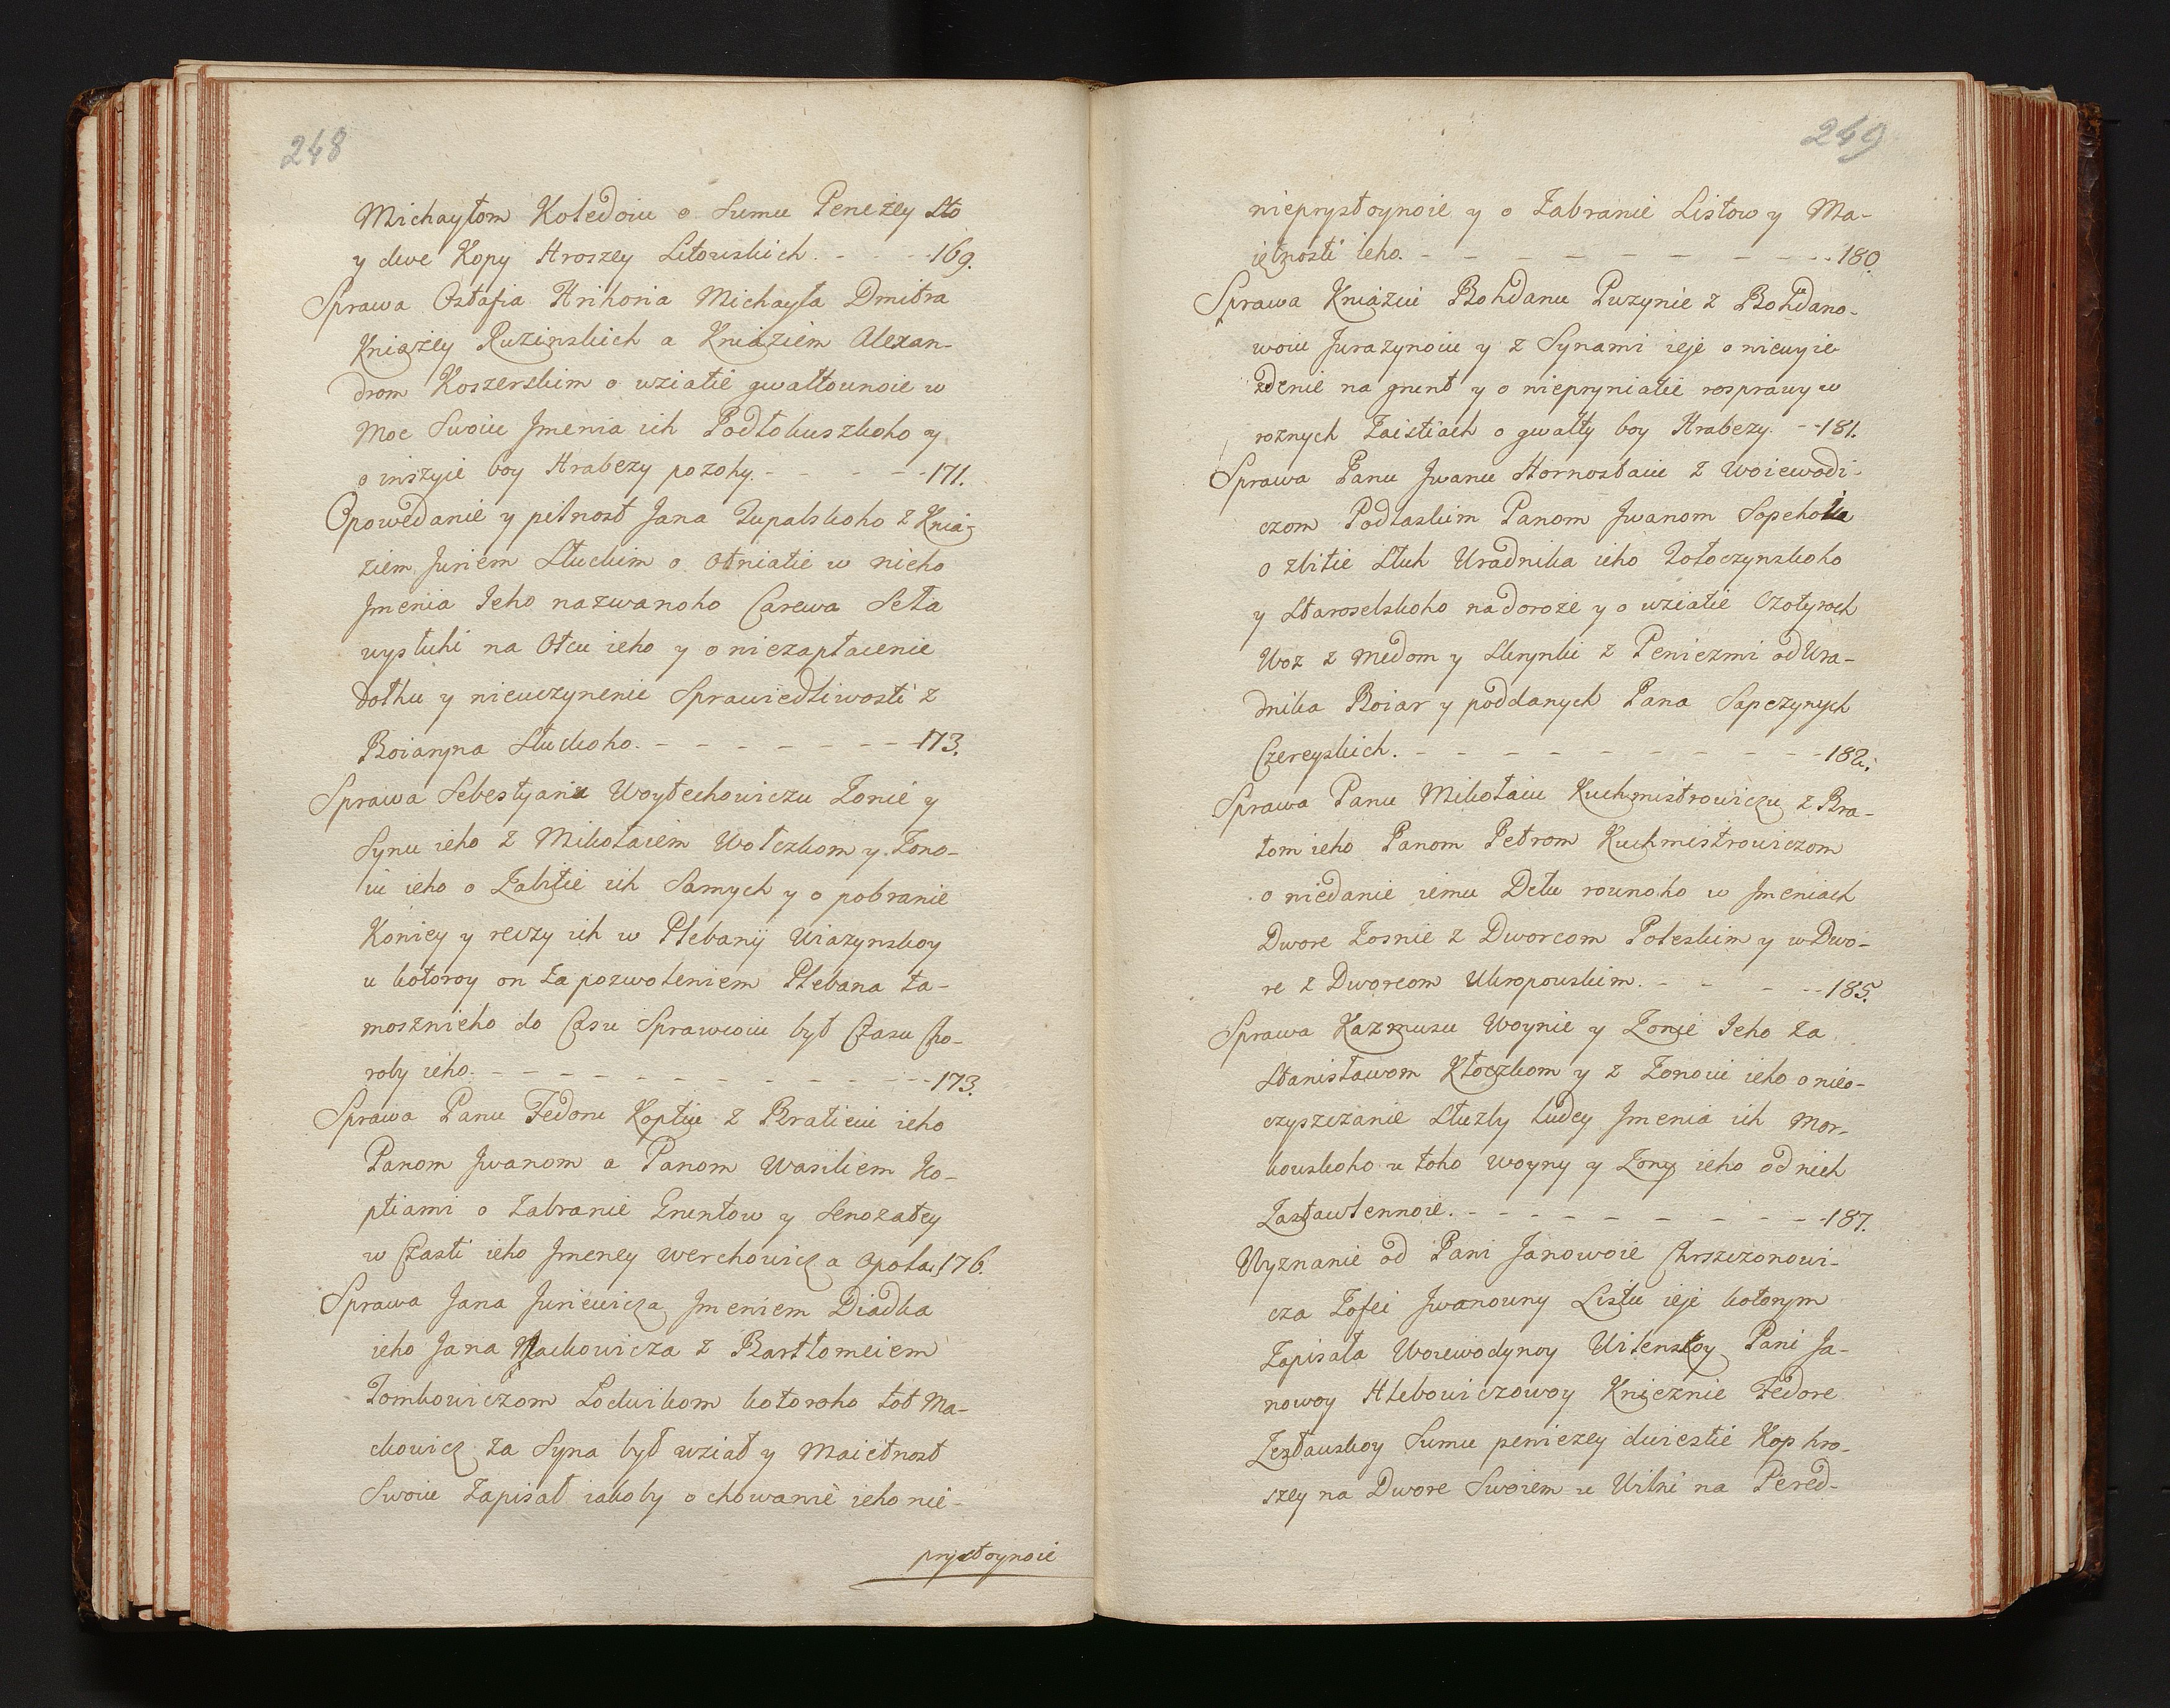 248
Michayłom Koledoiu o Sumu Penezey Sto
y dwe Kopy Hroszey Litowskich. - - - - 169.
Sprawa Ostafia Hrihoria Michayła Dmitra
Kniażey Ruzinskich a Kniaziem Alexan-
drom Koszerskim o wziatie gwałtownoie w
Moc Swoiu Jmenia ich Podłokuszkoho y
o inszyie boy Hrabezy pozohy. - - - - - 171.
Opowedanie y pilnost Jana Zupalskoho z Knia-
ziem Juriem Słuckim o Otniatie w nieho
Jmenia Jeho nazwanoho Carewa Seła
wysłuhi na Otcu ieho y o niezapłacenie
Dołhu y nieuczynenie Sprawiedliwosti z
Boiaryna Słuckoho. - - - - - - - - 173.
Sprawa Sebestyana Woytechowiczu Żonie y
Synu ieho z Mikołaiem Wołczkom y Żono-
iu ieho o Zabitie ich Samych y o pobranie
Koniey y reczy ich w Plebanij Wiazynskoy
u kotoroy on za pozwoleniem Plebana ta-
mosznieho do Czsu Sprawcoiu był Czasu Cho-
roby ieho. - - - - - - - - - - - - 173.
Sprawa Panu Fedoru Koptiu z Bratieiu ieho
Panom Jwanom a Panom Wasiliem Ko-
ptiami o Zabranie Gruntow y Senozatey
w Czasti ieho Jmeney Werchowicz a Opola. 176.
Sprawa Jana Juriewicza Jmeniem Diadka
ieho Jana Mackowicza z Bartłomeiem
Tomkowiczom Lodwikom kotoroho tot Ma-
ckowicz za Syna był wziat y Maietnost
Swoiu Zapisał iakoby o chowanie ieho nie-
prystoynoie
249
nieprystoynoie y o Zabranie Listow y Ma-
ietnosti ieho. - - - - - - - - - - - 180.
Sprawa Kniaziu Bohdanu Puzynie z Bohdano-
woiu Jurazynoiu y z Synami ieje o niewyie-
zdenie na grunt y o niepryniatie rosprawy w
roznych Zaistiach o gwałty boy Hrabezy. - - 181.
Sprawa Panu Jwanu Hornostaiu z Woiewodi-
czom Podlaskim Panom Jwanom Sopehoiu
o zbitie Sług Uradnika ieho Tołoczynskoho
y Staroselskoho na doroze y o wziatie Czotyroch
Woz z Medom y Skrynki z Peniezmi od Ura-
dnika Boiar y poddanych Pana Sapezynych
Czereyskich. - - - - - - - - - - - - 182.
Sprawa Panu Mikołaiu Kuchmistrowiczu z Bra-
tom ieho Panom Petrom Kuchmistrowiczom
o niedanie iemu Dełu rownoho w Jmeniach
Dwore Łosnie z Dworcom Poleskim y w Dwo-
re z Dworcom Ukropowskim. - - - - - 185.
Sprawa Kazmusu Woynie y Żonie Jeho za
Stanisławom Kłoczkom y z Żonoiu ieho o nieo-
czyszczanie Słuzby ludey Jmenia ich Mor-
kowskoho u toho Woyny y Żony ieho od nich
Zastawlennoie. - - - - - - - - - - - 187.
Wyznanie od Pani Janowoie Chrszczonowi-
cza Zofei Jwanowny Listu ieje kotorym
Zapisała Woiewodynoy Witenskoy Pani Ja-
nowoy Hlebowiczowoy Knieznie Fedore
Zesławskoy Sumu peniezey dwiestie Kop hro-
szey na Dwore Swoiem u Wilni na Pered-